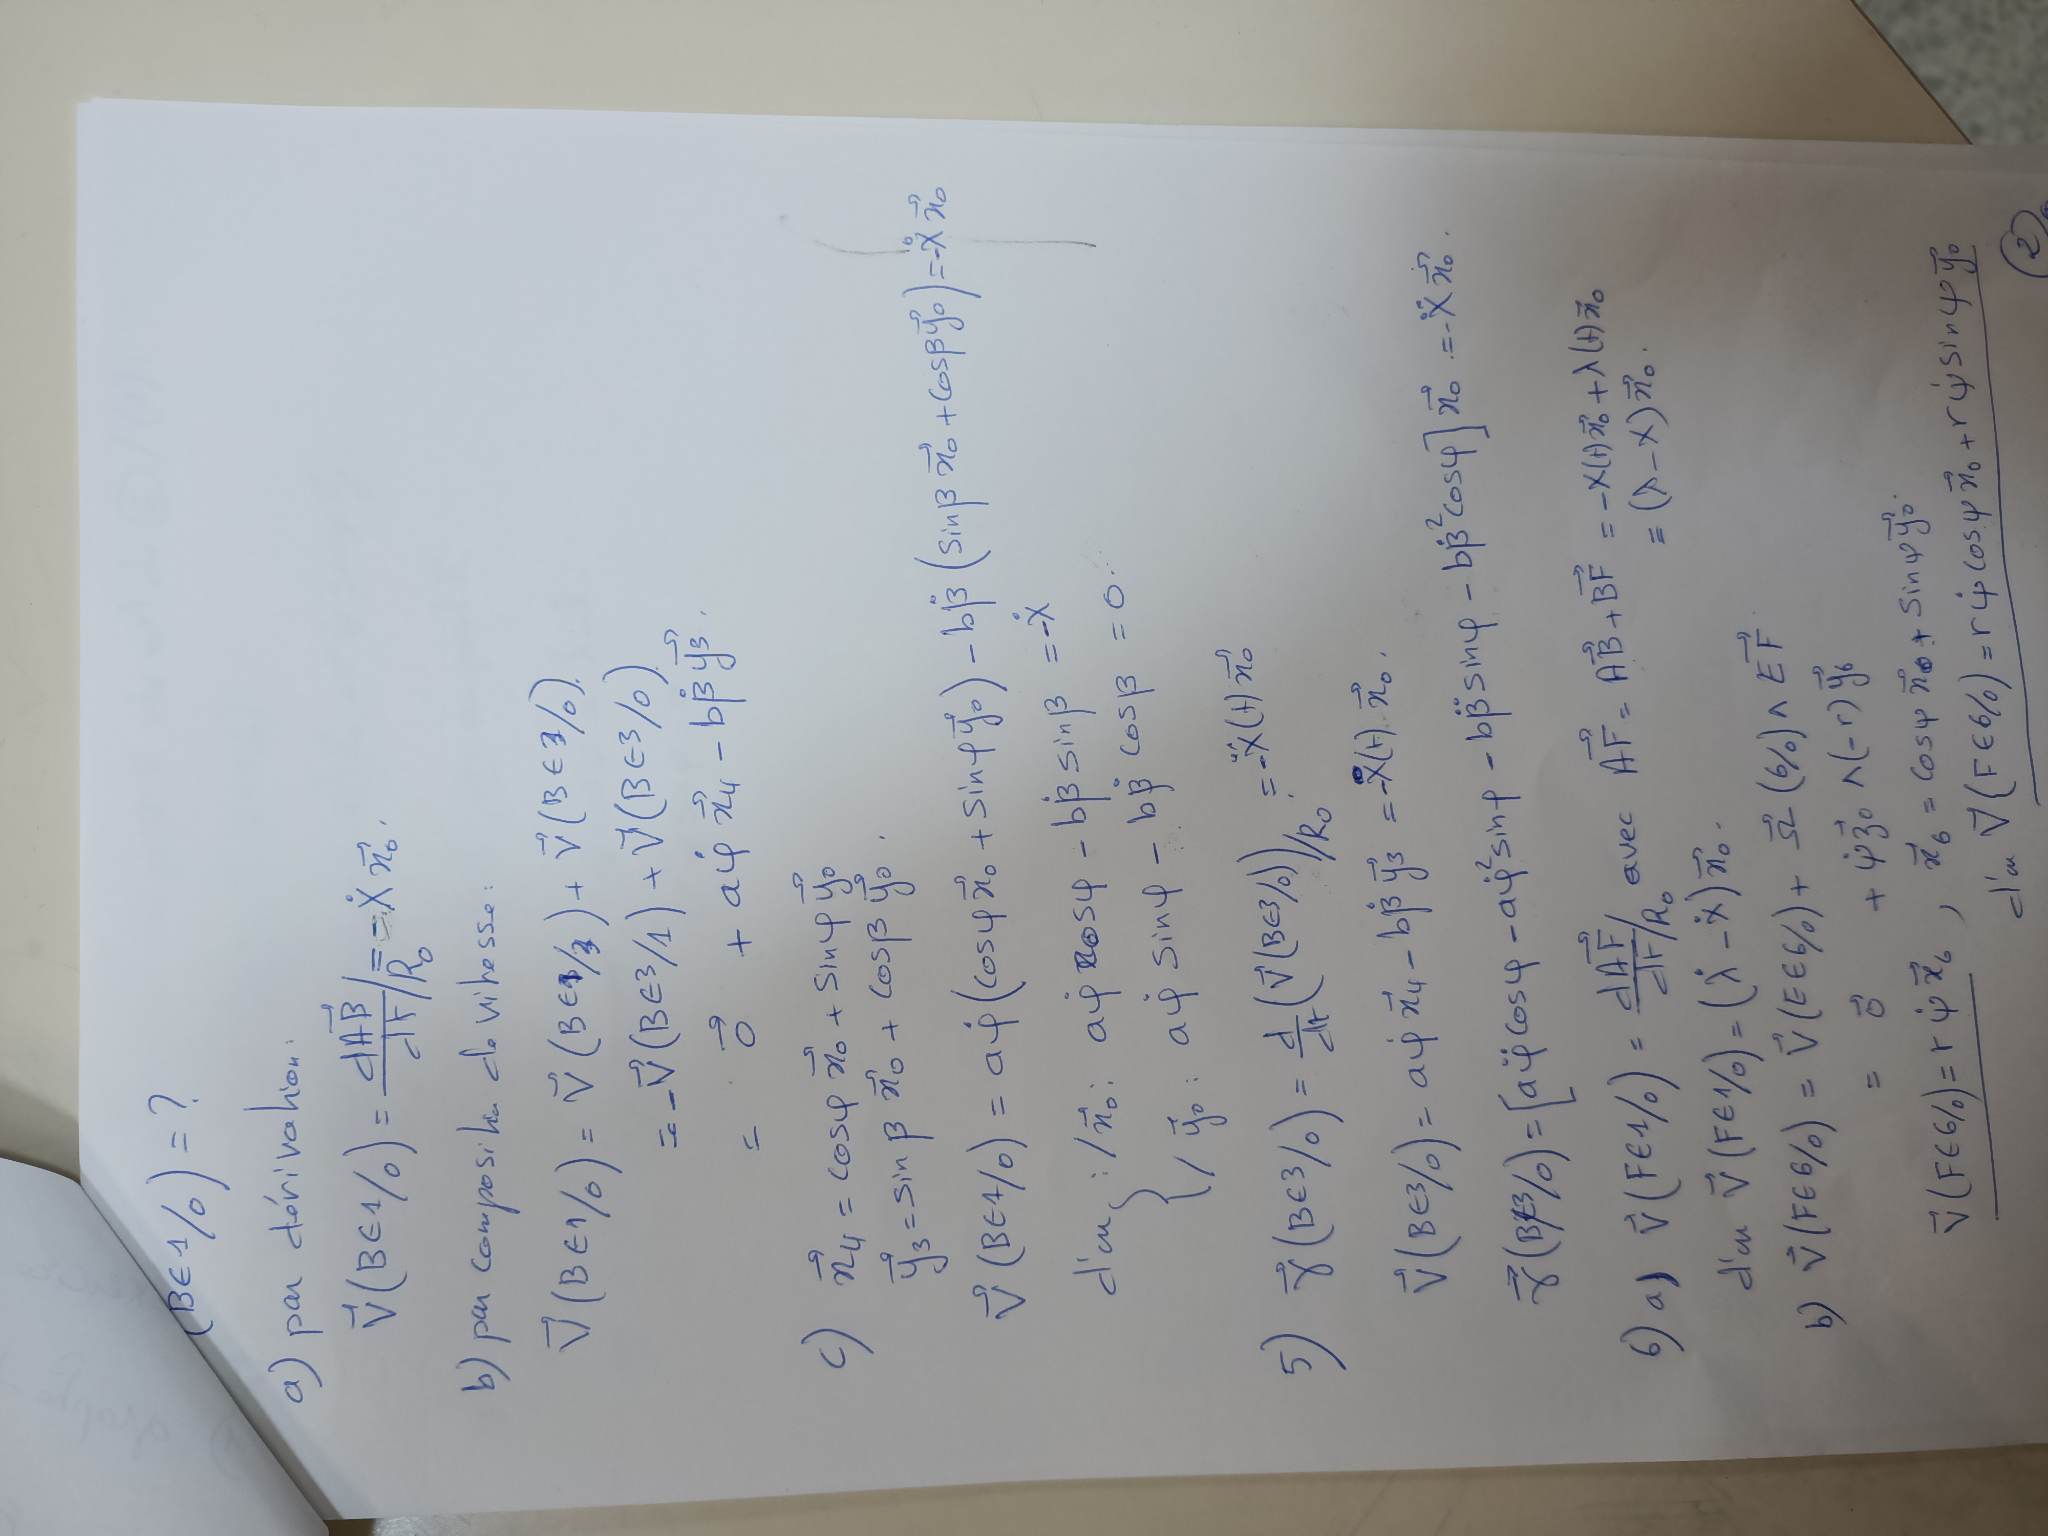 (B∈1/0) = ?
a) par dérivation:
V⃗(B∈1/0) = dAB⃗/dt /R₀ = -Ẋ x⃗₀.
b) par composition de vitesse:
V⃗(B∈1/0) = V⃗(B∈1/3) + V⃗(B∈3/0).
= -V⃗(B∈3/1) + V⃗(B∈3/0)
= 0⃗ + aφ̇ x⃗₄ - bβ̇ y⃗₃.
c) x⃗₄ = cosφ x⃗₀ + sinφ y⃗₀
y⃗₃ = sinβ x⃗₀ + cosβ y⃗₀.
V⃗(B∈1/0) = aφ̇(cosφ x⃗₀ + sinφ y⃗₀) - bβ̇(sinβ x⃗₀ + cosβ y⃗₀) = -Ẋ x⃗₀
d'où { : /x⃗₀: aφ̇ cosφ - bβ̇ sinβ = -Ẋ
/y⃗₀: aφ̇ sinφ - bβ̇ cosβ = 0.
5) γ⃗(B∈3/0) = d/dt (V⃗(B∈3/0))/R₀ = -Ẍ(t) x⃗₀
V⃗(B∈3/0) = aφ̇ x⃗₄ - bβ̇ y⃗₃ = -Ẋ(t) x⃗₀.
γ⃗(B∈3/0) = [aφ̈ cosφ - aφ̇² sinφ - bβ̈ sinφ - bβ̇² cosφ] x⃗₀ = -Ẍ x⃗₀.
6) a) V⃗(F∈1/0) = dAF⃗/dt /R₀ avec AF⃗ = AB⃗ + BF⃗ = -X(t) x⃗₀ + λ(t) x⃗₀
= (λ - X) x⃗₀.
d'où V⃗(F∈1/0) = (λ̇ - Ẋ) x⃗₀.
b) V⃗(F∈6/0) = V⃗(E∈6/0) + Ω⃗(6/0) ∧ EF⃗
= 0⃗ + ψ̇ z⃗₀ ∧ (-r) y⃗₆
V⃗(F∈6/0) = r ψ̇ x⃗₆, x⃗₆ = cosψ x⃗₀ + sinψ y⃗₀.
d'où V⃗(F∈6/0) = rψ̇ cosψ x⃗₀ + rψ̇ sinψ y⃗₀
2